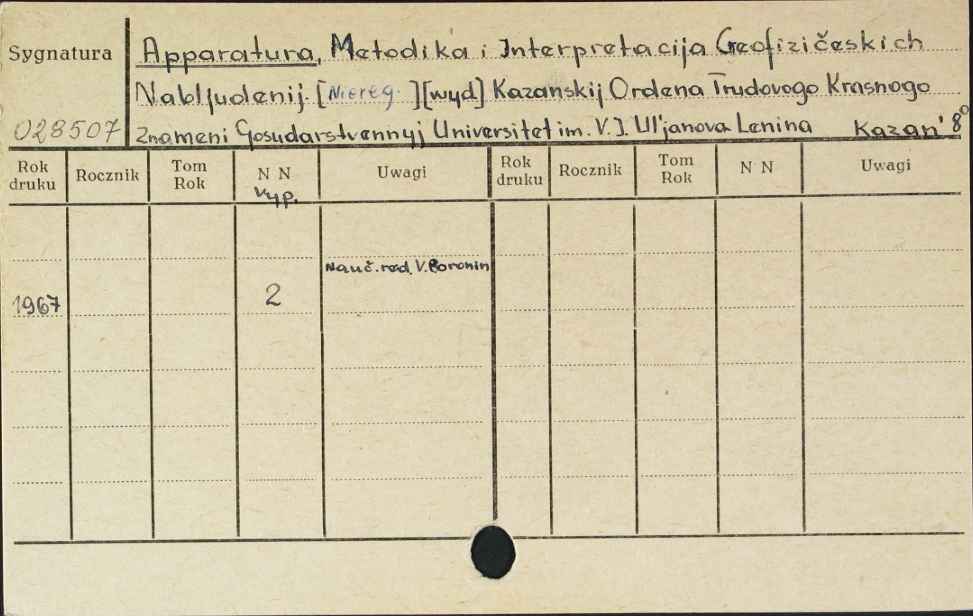 Sygnatura
Apparatura, Metodika i Interpretacija Geofizičeskich
Nabljudenij. [Niereg.] [wyd] Kazanskij Ordena Trudovogo Krasnogo
028507 Znameni Gosudarstvennyj Universitet im. V. I. Ul'janova Lenina Kazan' 8°
Rok druku Rocznik Tom Rok N N Uwagi Rok druku Rocznik Tom Rok N N Uwagi
Vyp.
Nauč. red. V.
1967 2